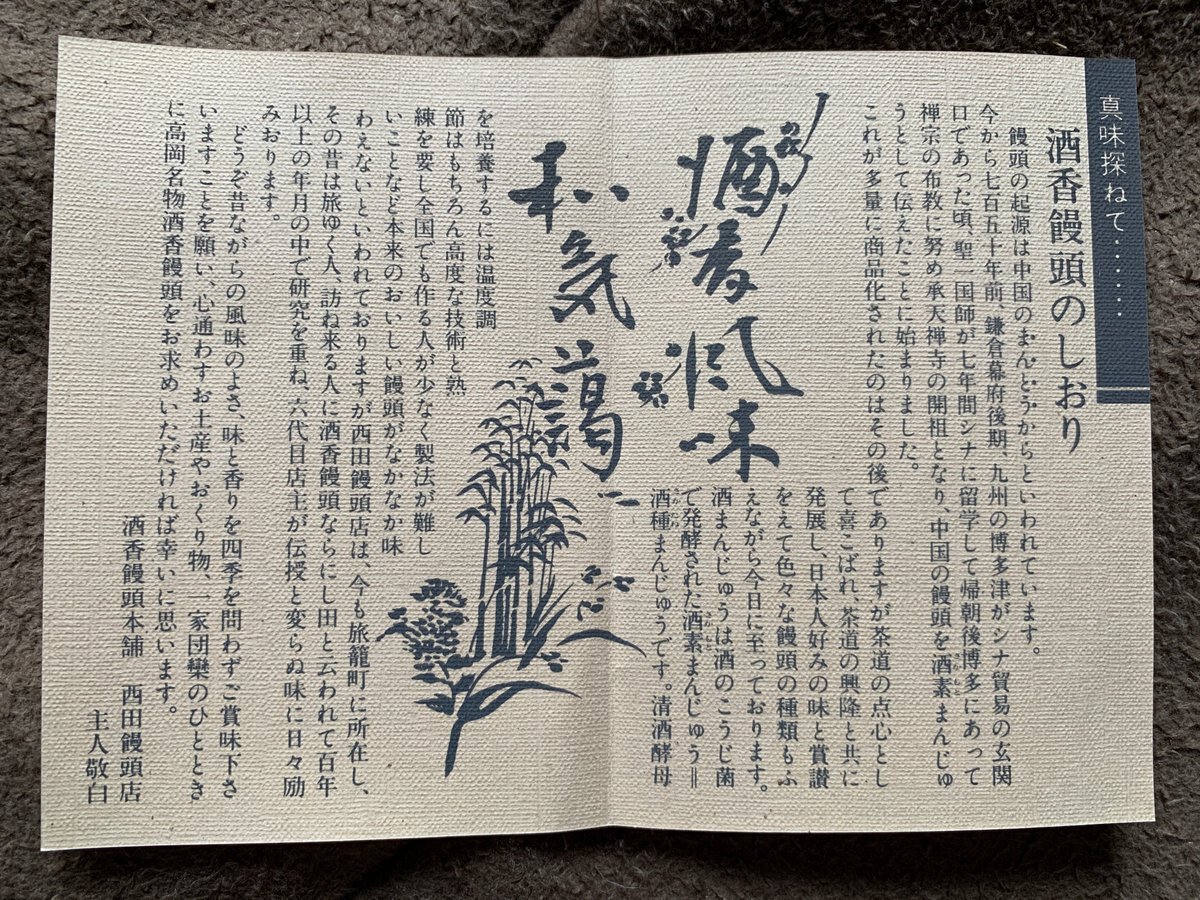 真味探ねて・・・・・・・
酒香饅頭のしおり
饅頭の起源は中国のまんとうからといわれています。
今から七百五十年前、鎌倉幕府後期、九州の博多津がシナ貿易の玄関
口であった頃、聖一国師が七年間シナに留学して帰朝後博多にあって
禅宗の布教に努め承天禅寺の開祖となり、中国の饅頭を酒素まんじゅ
うとして伝えたことに始まりました。
これが多量に商品化されたのはその後でありますが茶道の点心とし
て喜こばれ、茶道の興隆と共に
発展し、日本人好みの味と賞讃
をえて色々な饅頭の種類もふ
えながら今日に至っております。
酒まんじゅうは酒のこうじ菌
で発酵された酒素まんじゅう＝
酒種まんじゅうです。清酒酵母
酒香風味
和気藹々
を培養するには温度調
節はもちろん高度な技術と熟
練を要し全国でも作る人が少なく製法が難し
いことなど本来のおいしい饅頭がなかなか味
わえないといわれておりますが西田饅頭店は、今も旅籠町に所在し、
その昔は旅ゆく人、訪ね来る人に酒香饅頭ならにし田と云われて百年
以上の年月の中で研究を重ね、六代目店主が伝授と変らぬ味に日々励
みおります。
どうぞ昔ながらの風味のよさ、味と香りを四季を問わずご賞味下さ
いますことを願い、心通わすお土産やおくり物、一家団欒のひととき
に高岡名物酒香饅頭をお求めいただければ幸いに思います。
酒香饅頭本舗　西田饅頭店
主人敬白